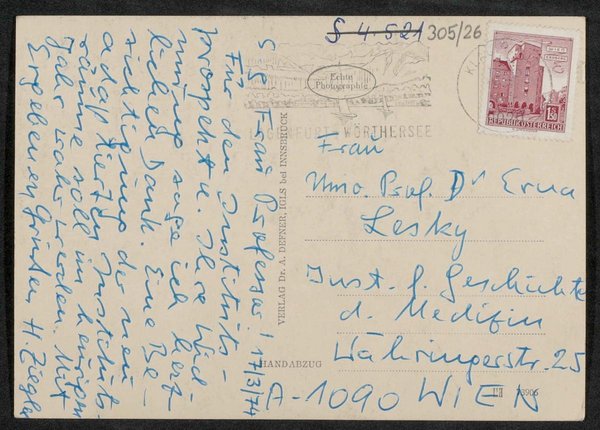 S 4 521
305/26
Echte
Photographie
KLAGENFURT WÖRTHERSEE
1.50
REPUBLIK ÖSTERREICH
S. g. Frau Professor! 17/3/74
Für den Instituts-
prospekt u. Ihre Wid-
mung sage ich herz-
lichen Dank. Eine Be-
sichtigung der neu
adaptierten Instituts-
räume soll im heurigen
Jahr wahr werden. Mit
Ergebener, H. Ziegler
VERLAG Dr. A. DEFNER, IGLS bei INNSBRUCK
HANDABZUG
Frau
Univ. Prof. Dr Erna
Lesky
Inst. f. Geschichte
d. Medizin
Währingerstr. 25
A-1090 WIEN